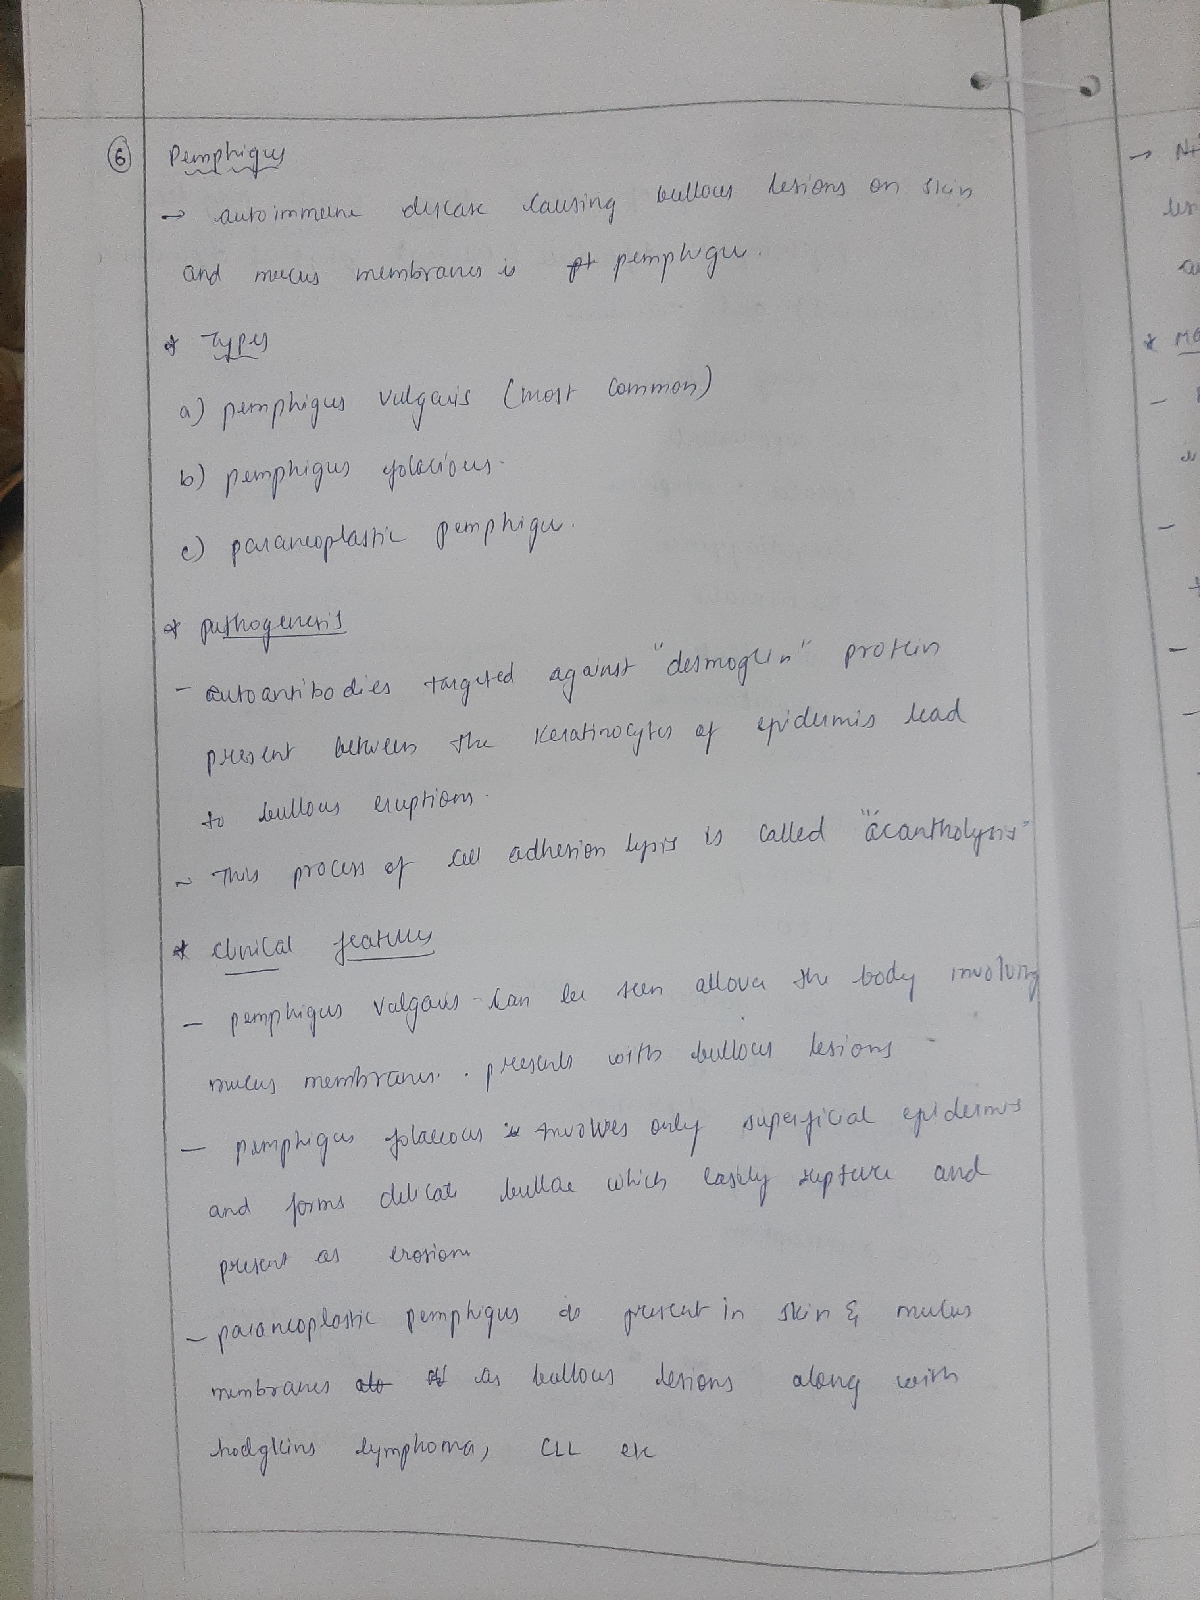 6 Pemphigus
→ autoimmune disease causing bullous lesions on skin
and mucus membranes is pemphigu.
* Types
a) pemphigus vulgaris (most common)
b) pemphigus folacious.
c) paraneoplastic pemphigu.
* pathogenesis
- autoantibodies targeted against "desmoglin" protein
present between the keratinocytes of epidermis lead
to bullous eruptions.
- This process of cell adhesion lysis is called "acantholysis"
* clinical features
- pemphigus valgaris - can be seen allover the body involving
mucus membranes. presents with bullous lesions -
- pemphigus folaceous involves only superficial epidermis
and forms delicate bullae which easily rupture and
present as erosions
- paraneoplastic pemphigus do present in skin & mucus
membranes as bullous lesions along with
hodgkins lymphoma, CLL etc
→
*
-
-
-
-